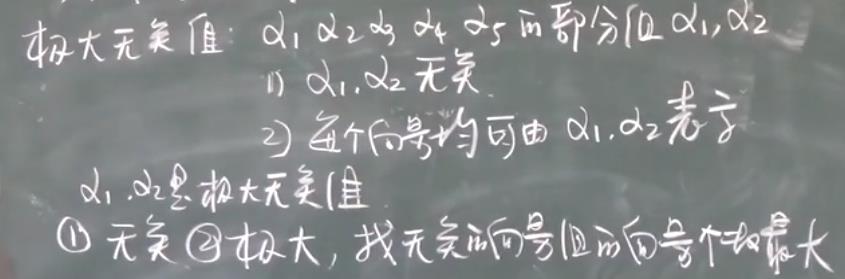 极大无关组: α₁ α₂ α₃ α₄ α₅ 的部分组 α₁, α₂
1) α₁. α₂ 无关.
2) 每个向量均可由 α₁. α₂ 表示
α₁. α₂是极大无关组.
① 无关 ② 极大, 找无关的向量组的向量个数最大